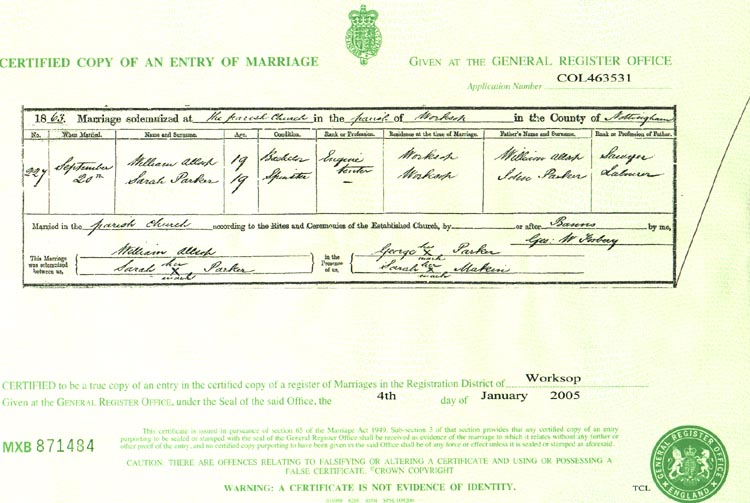 CERTIFIED COPY OF AN ENTRY OF MARRIAGE
GIVEN AT THE GENERAL REGISTER OFFICE
Application Number COL463531
1863. Marriage solemnized at the parish Church in the parish of Worksop in the County of Nottingham
No. When Married. Name and Surname. Age. Condition. Rank or Profession. Residence at the time of Marriage. Father's Name and Surname. Rank or Profession of Father.
227 September 20th William Allsop 19 Bachelor Engine Worksop William Allsop Sawyer
Sarah Parker 19 Spinster — Worksop Parker Labourer
Married in the parish Church according to the Rites and Ceremonies of the Established Church, by or after Banns by me,
Geo: W
This Marriage was solemnized between us,
William Allsop
Sarah her X mark Parker
in the Presence of us,
George her X mark Parker
Sarah her X mark Makin
CERTIFIED to be a true copy of an entry in the certified copy of a register of Marriages in the Registration District of Worksop
Given at the GENERAL REGISTER OFFICE, under the Seal of the said Office, the 4th day of January 2005
MXB 871484
This certificate is issued in pursuance of section 65 of the Marriage Act 1949. Sub-section 3 of that section provides that any certified copy of an entry
purporting to be sealed or stamped with the seal of the General Register Office shall be received as evidence of the marriage to which it relates without any further or
other proof of the entry, and no certified copy purporting to have been given in the said Office shall be of any force or effect unless it is sealed or stamped as aforesaid.
CAUTION: THERE ARE OFFENCES RELATING TO FALSIFYING OR ALTERING A CERTIFICATE AND USING OR POSSESSING A
FALSE CERTIFICATE. ©CROWN COPYRIGHT
WARNING: A CERTIFICATE IS NOT EVIDENCE OF IDENTITY.
TCL
GENERAL REGISTER OFFICE
ENGLAND